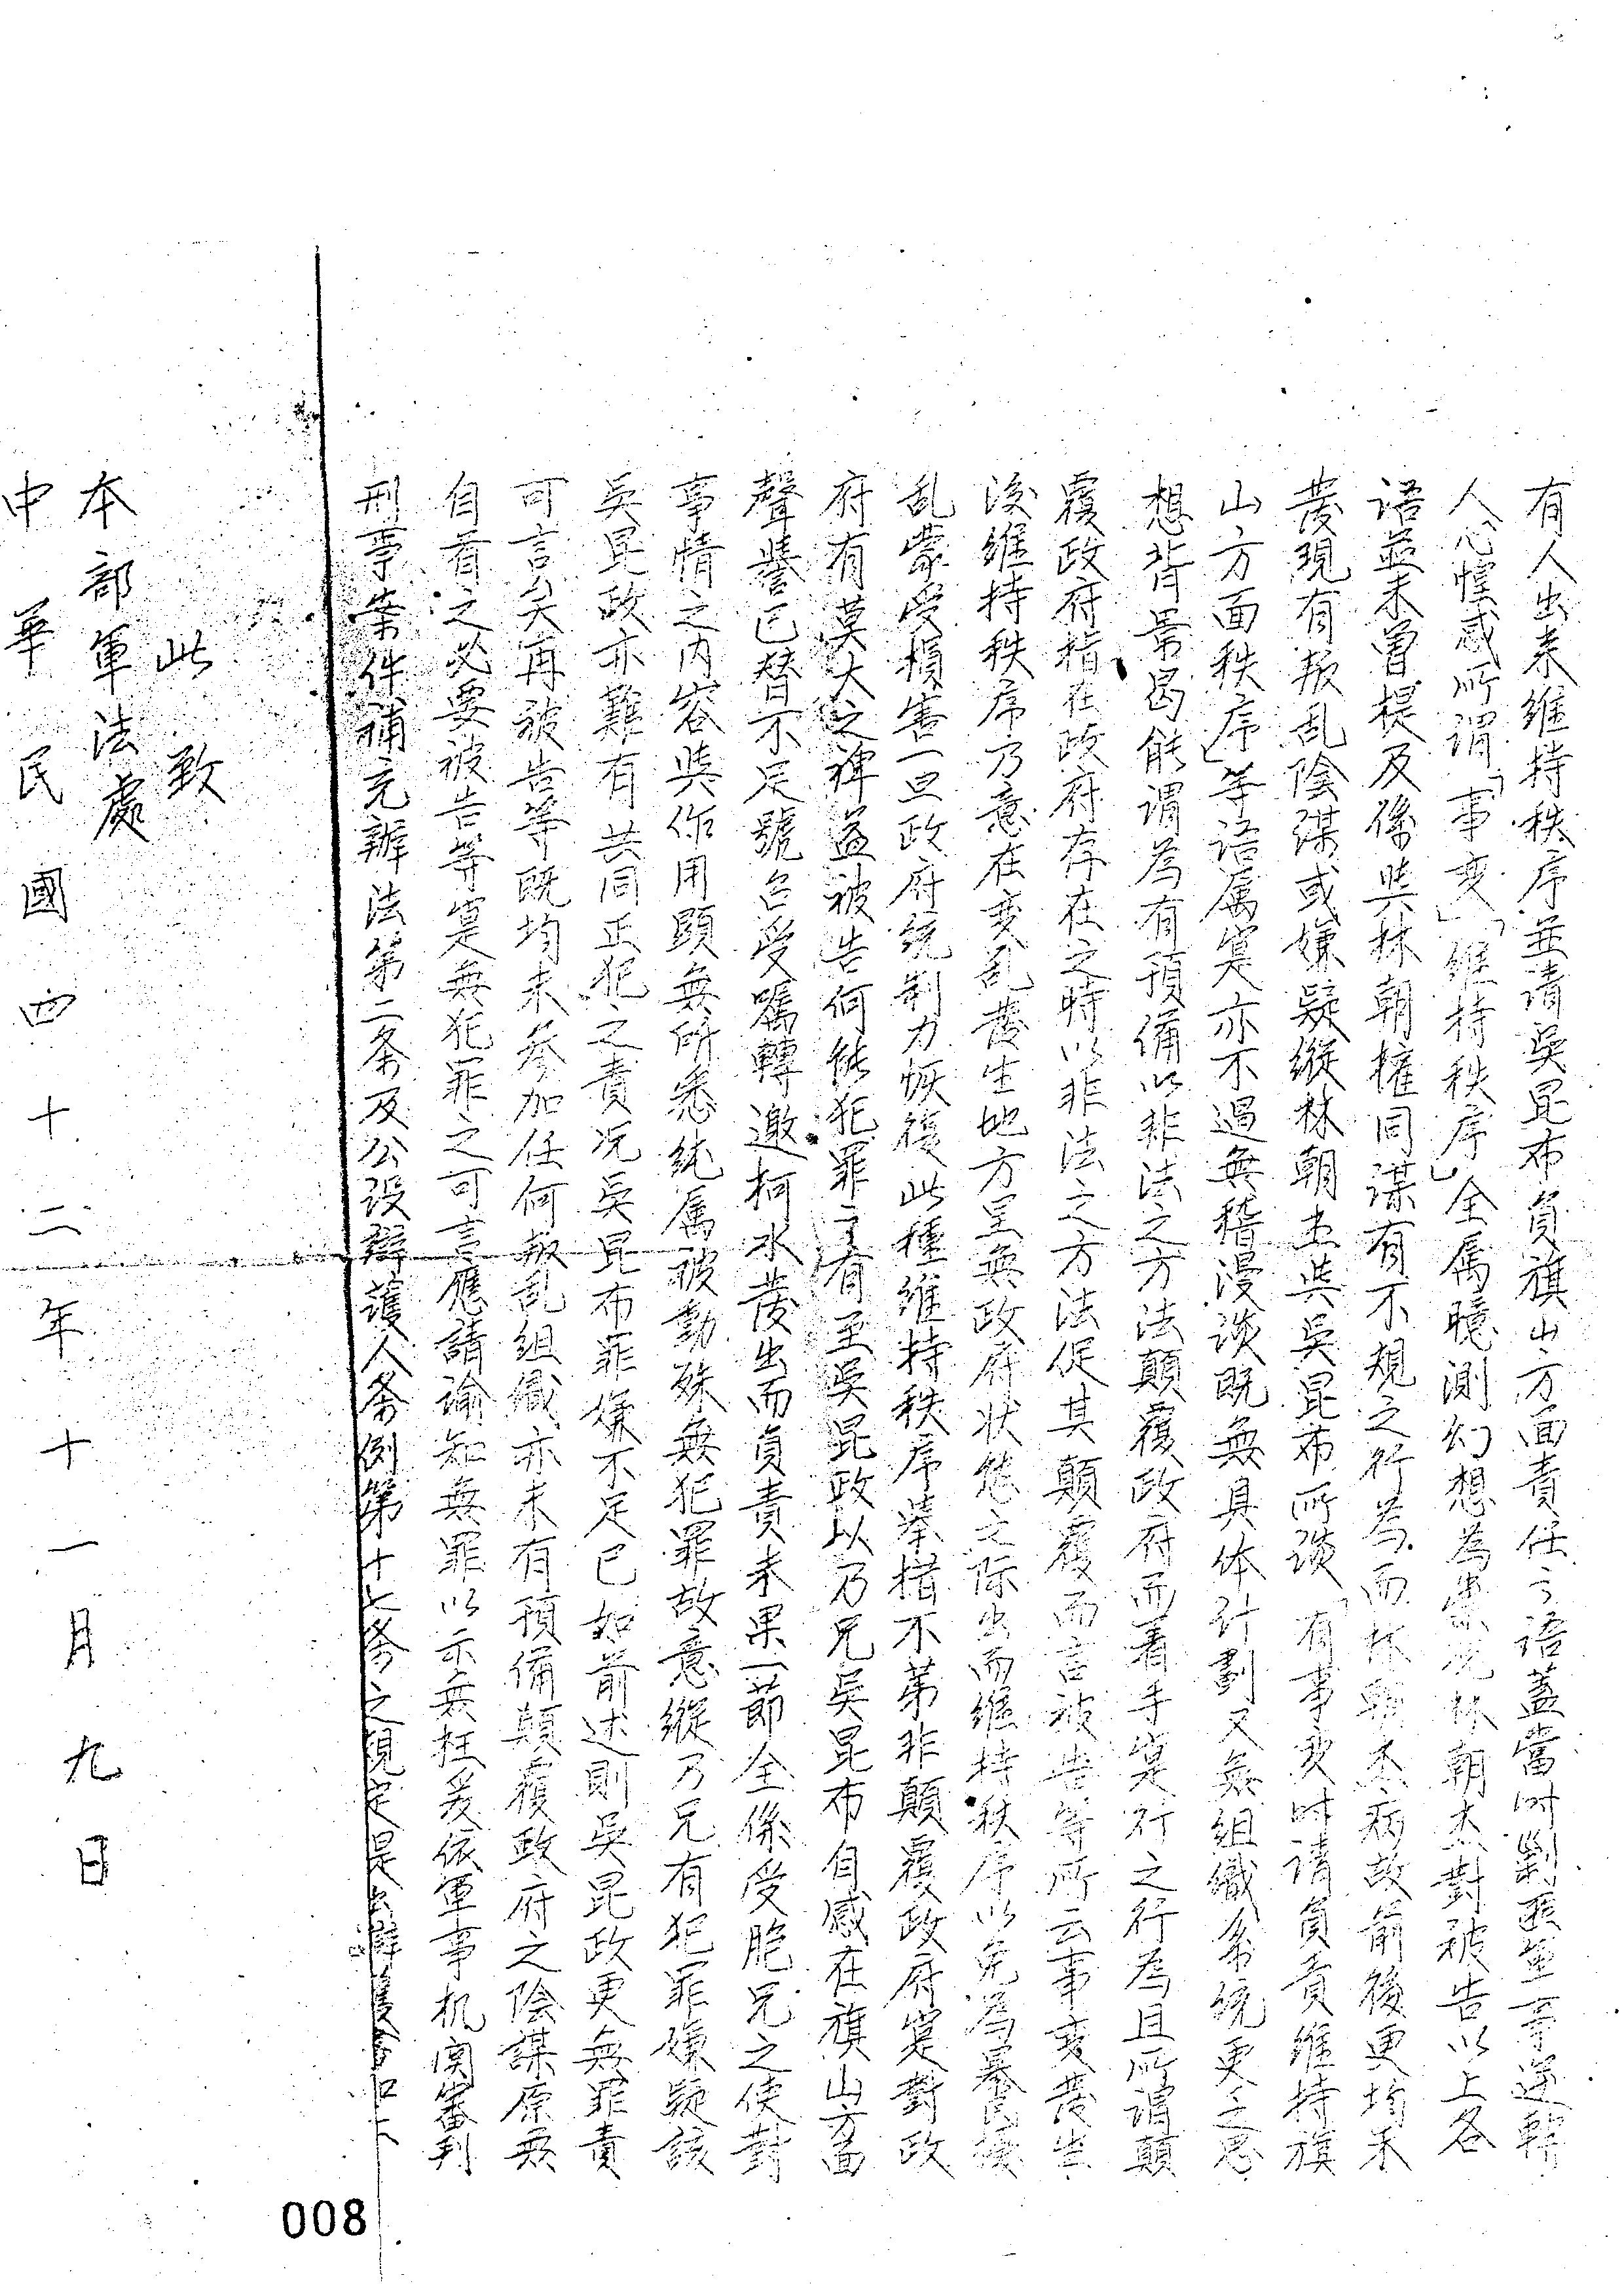 有人出来維持秩序並請吳昆布負旗山方面責任之語蓋當时剿匪至
人心惶惑所謂「事变」「維持秩序」全属臆測幻想為崇况林朝杰對被告以上各
语並未曾提及係與林朝權同謀有不規之行為而林朝杰病故前後更均未
發現有叛乱陰謀或嫌疑縱林朝杰與吳昆布所談「有事变时请負責維持旗
山方面秩序」等语属寔亦不過無稽漫談既無具体计劃又無组織系统更乏思
想背景曷能謂為有預備以非法之方法顛覆政府而着手寔行之行為且所謂顛
覆政府指在政府存在之時以非法之方法促其顛覆而言被告等所云事变發生
後維持秩序乃意在变乱發生地方呈無政府状態之际出而維持秩序以免為暴民擾
乱蒙受損害一旦政府統制力恢復此種維持秩序举措不第非顛覆政府寔對政
府有莫大之裨益被告何能犯罪之有至吳昆政以乃兄吳昆布自感在旗山方面
聲誉已替不足號召受嘱轉邀柯水發出而負責未果一節全係受胞兄之使對
事情之内容與作用顕無所悉純属被動殊無犯罪故意縱乃兄有犯罪嫌疑該
吳昆政亦難有共同正犯之責况吳昆布罪嫌不足已如前述則吳昆政更無罪責
可言矣再被告等既均未参加任何叛乱组織亦未有預備顛覆政府之陰謀原無
自首之必要被告等寔無犯罪之可言應請諭知無罪以示無枉爰依軍事机関審判
刑事案件補充辦法第二条及公設辯護人条例第十七条之規定提出辯護書如上
此致
本部軍法處
中華民國四十二年十一月九日
008